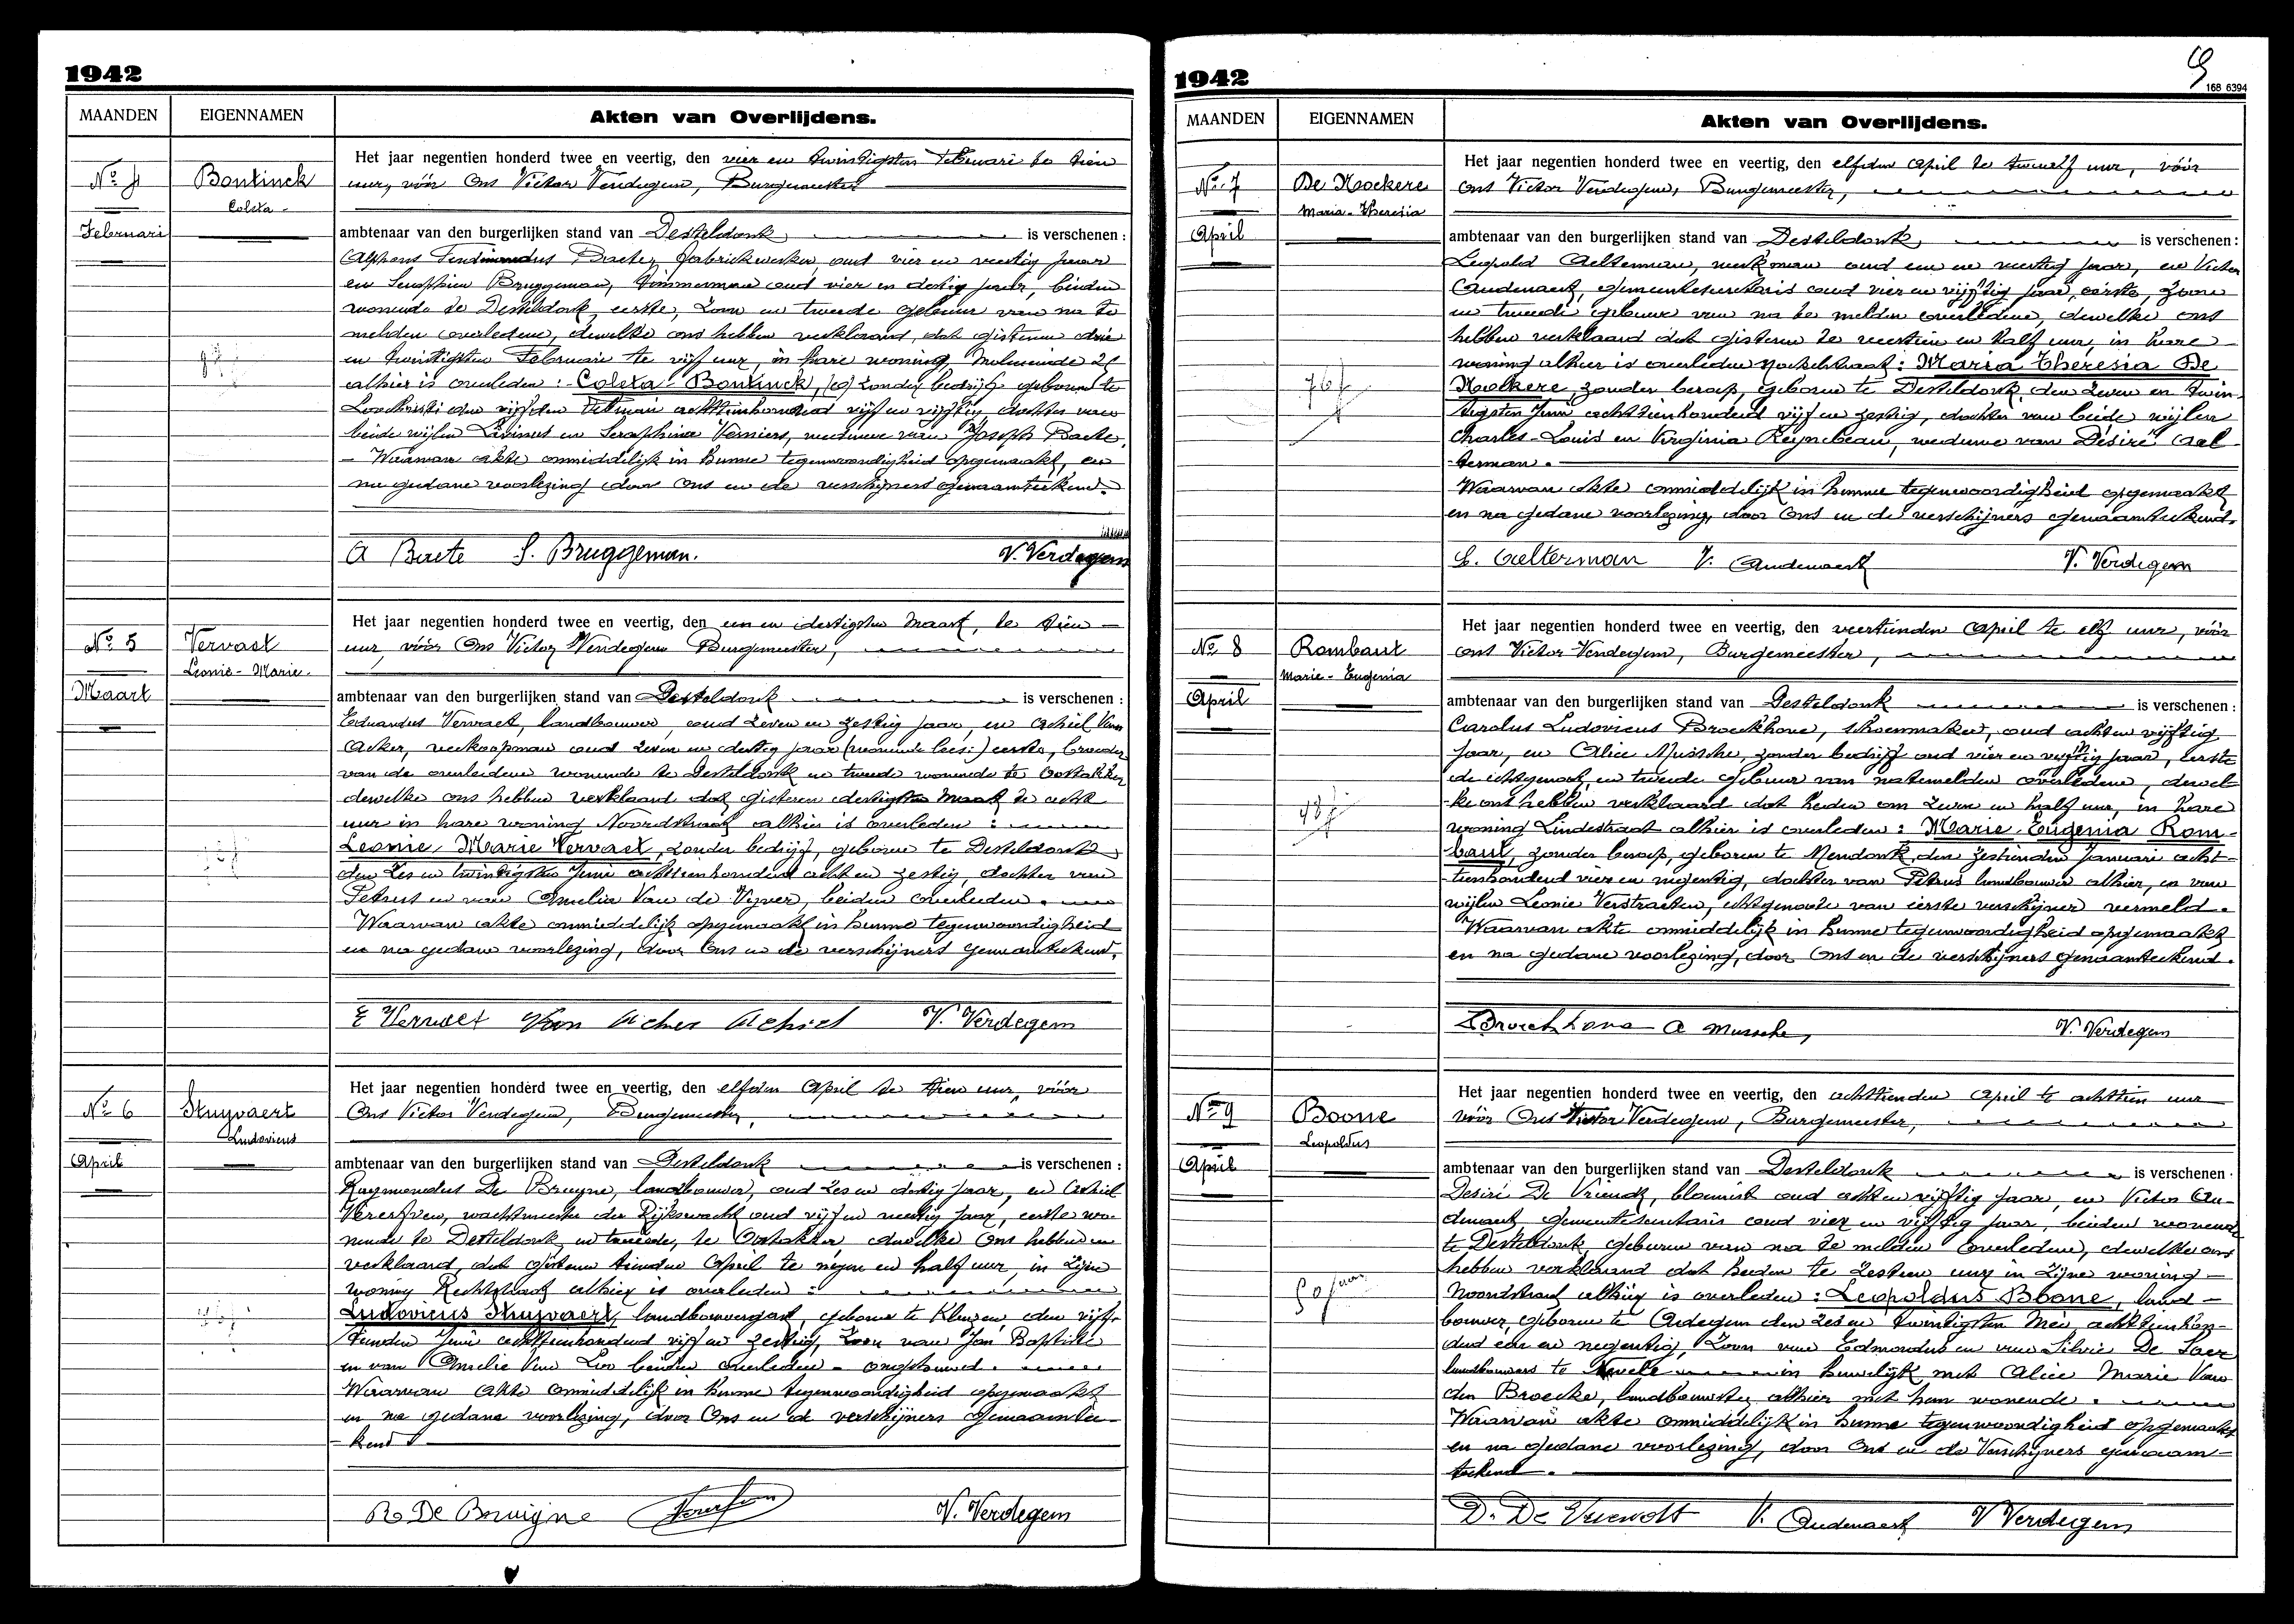 1942
MAANDEN EIGENNAMEN Akten van Overlijdens.
No 4
Februari
Bontinck
Coleta
Het jaar negentien honderd twee en veertig, den vier en twintigsten Februari te tien
uur, vóór Ons Victor Verdegem, Burgemeester
ambtenaar van den burgerlijken stand van Desteldonk is verschenen :
Alphons Ferdinandus Baete, fabriekwerker, oud vier en veertig jaar
en Seraphien Bruggeman, timmerman oud vier en dertig jaar, beiden
wonende te Desteldonk, eerste, zoon en tweede gebuur van na te
melden overledene, dewelke ons hebben verklaard, dat gisteren drie
en twintigsten Februari te vijf uur, in hare woning, Moleneinde
alhier is overleden : Coleta Bontinck, zonder bedrijf geboren te
Loochristi den vijfden Februari achttienhonderd vijf en vijftig, dochter van
beide wijlen Livinus en Seraphina Verniers, weduwe van Joseph Baete.
- Waarvan akte onmiddelijk in hunne tegenwoordigheid opgemaakt, en
na gedane voorlezing door Ons en de verschijners genaamteekend.
A Baete S. Bruggeman. V. Verdegem
No 5
Maart
Vervaet
Leonie - Marie
Het jaar negentien honderd twee en veertig, den een en dertigsten Maart, te tien
uur, vóór Ons Victor Verdegem Burgemeester,
ambtenaar van den burgerlijken stand van Desteldonk is verschenen :
Eduardus Vervaet, landbouwer, oud zeven en zestig jaar, en Achiel Van
Acker, veekoopman oud zeven en dertig jaar (wonende lees:) eerste, broeder
van de overledene wonende te Desteldonk en tweede wonende te Oostakker
dewelke ons hebben verklaard dat gisteren dertigsten Maart te acht
uur in hare woning Noordstraat alhier is overleden :
Leonie, Marie Vervaet, zonder bedrijf, geboren te Desteldonk
den zes en twintigsten Juni achttienhonderd acht en zestig, dochter van
Petrus en van Amelia Van de Vijver, beiden overleden.
Waarvan akte onmiddelijk opgemaakt in hunne tegenwoordigheid
en na gedane voorlezing, door Ons en de verschijners genaamteekend.
E Vervaet Van Acker Achiel V. Verdegem
No 6
April
Stuyvaert
Ludovicus
Het jaar negentien honderd twee en veertig, den elfden April te tien uur, vóór
Ons Victor Verdegem, Burgemeester,
ambtenaar van den burgerlijken stand van Desteldonk is verschenen :
Raymondus De Bruyne, landbouwer, oud zes en dertig jaar, en Achiel
wachtmeester der Rijkswacht oud vijf en veertig jaar, eerste wo-
nende te Desteldonk en tweede, te Oostakker dewelke Ons hebben
verklaard, dat gisteren tienden April te negen en half uur, in zijne
woning Rechtstraat alhier is overleden :
Ludovicus Stuyvaert, landbouwersgast, geboren te Kluizen, den vijf-
tienden Juni achttienhonderd vijf en zestig, zoon van Jan Baptiste
en van Amelie Van Loo beiden overleden - ongehuwd.
Waarvan akte onmiddelijk in hunne tegenwoordigheid opgemaakt
en na gedane voorlezing, door Ons en de verschijners genaamtee-
kend
R De Bruigne V. Verdegem
1942
168 6394
MAANDEN EIGENNAMEN Akten van Overlijdens.
No 7
April
De Moekere
Maria - Theresia
76 j
Het jaar negentien honderd twee en veertig, den elfden April te twaalf uur, vóór
ons Victor Verdegem, Burgemeester,
ambtenaar van den burgerlijken stand van Desteldonk is verschenen :
Leopold Aelterman, werkman oud een en veertig jaar, en Victor
Audenaert, gemeentesecretaris oud vier en vijftig jaar, eerste, zoon
en tweede gebuur van na te melden overledene, dewelke ons
hebben verklaard dat gisteren te veertien en half uur, in hare
woning alhier is overleden : Maria Theresia De
Moekere, zonder beroep, geboren te Desteldonk, den zeven en twin-
tigsten Juni achttienhonderd vijf en zestig, dochter van beide wijlen
Charles-Louis en Virginia Reynebeau, weduwe van Désiré Ael-
terman.
Waarvan akte onmiddelijk in hunne tegenwoordigheid opgemaakt
en na gedane voorlezing, door Ons en de verschijners genaamteekend.
L. Aelterman V. Audenaert V. Verdegem
No 8
April
Rombaut
Marie - Eugenia
48 j
Het jaar negentien honderd twee en veertig, den veertienden April te elf uur, vóór
ons Victor Verdegem, Burgemeester,
ambtenaar van den burgerlijken stand van Desteldonk is verschenen :
Carolus Ludovicus Broeckhove, schoenmaker, oud acht en vijftig
jaar, en Alice Mussche, zonder bedrijf oud vier en vijftig jaar, eerste
de echtgenoot, en tweede gebuur van natemelden overledene, dewel-
ke ons hebben verklaard dat heden om zeven en half uur, in hare
woning Lindestraat alhier is overleden : Marie Eugenia Rom-
baut, zonder beroep, geboren te Mendonk, den zestienden Januari acht-
tienhonderd vier en negentig, dochter van Petrus landbouwer alhier, en van
wijlen Leonie Verstraeten, echtgenoote van eerste verschijner vermeld.
Waarvan akte onmiddelijk in hunne tegenwoordigheid opgemaakt
en na gedane voorlezing, door Ons en de verschijners genaamteekend.
Broeckhove A Mussche, V. Verdegem
No 9
April
Boone
Leopoldus
50 jaar
Het jaar negentien honderd twee en veertig, den achttienden April te achttien uur
vóór Ons Victor Verdegem, Burgemeester,
ambtenaar van den burgerlijken stand van Desteldonk is verschenen :
Desiré De Vriendt, bloemist oud acht en vijftig jaar, en Victor Au-
denaert gemeentesecretaris oud vier en vijftig jaar, beiden wonende
te Desteldonk, geburen van na te melden overledene, dewelke ons
hebben verklaard dat heden te zestien uur in zijne woning
Noordstraat alhier is overleden : Leopoldus Boone, land-
bouwer, geboren te Adegem den zes en twintigsten Mei achttienhon-
derd een en negentig, zoon van Edmondus en van Silvie De Saer
landbouwers te in huwelijk met Alice Marie Van
den Broecke, landbouwster alhier met hem wonende.
Waarvan akte onmiddelijk in hunne tegenwoordigheid opgemaakt
en na gedane voorlezing, door Ons en de Verschijners genaam-
teekend.
D. De Vriendt V. Audenaert V Verdegem